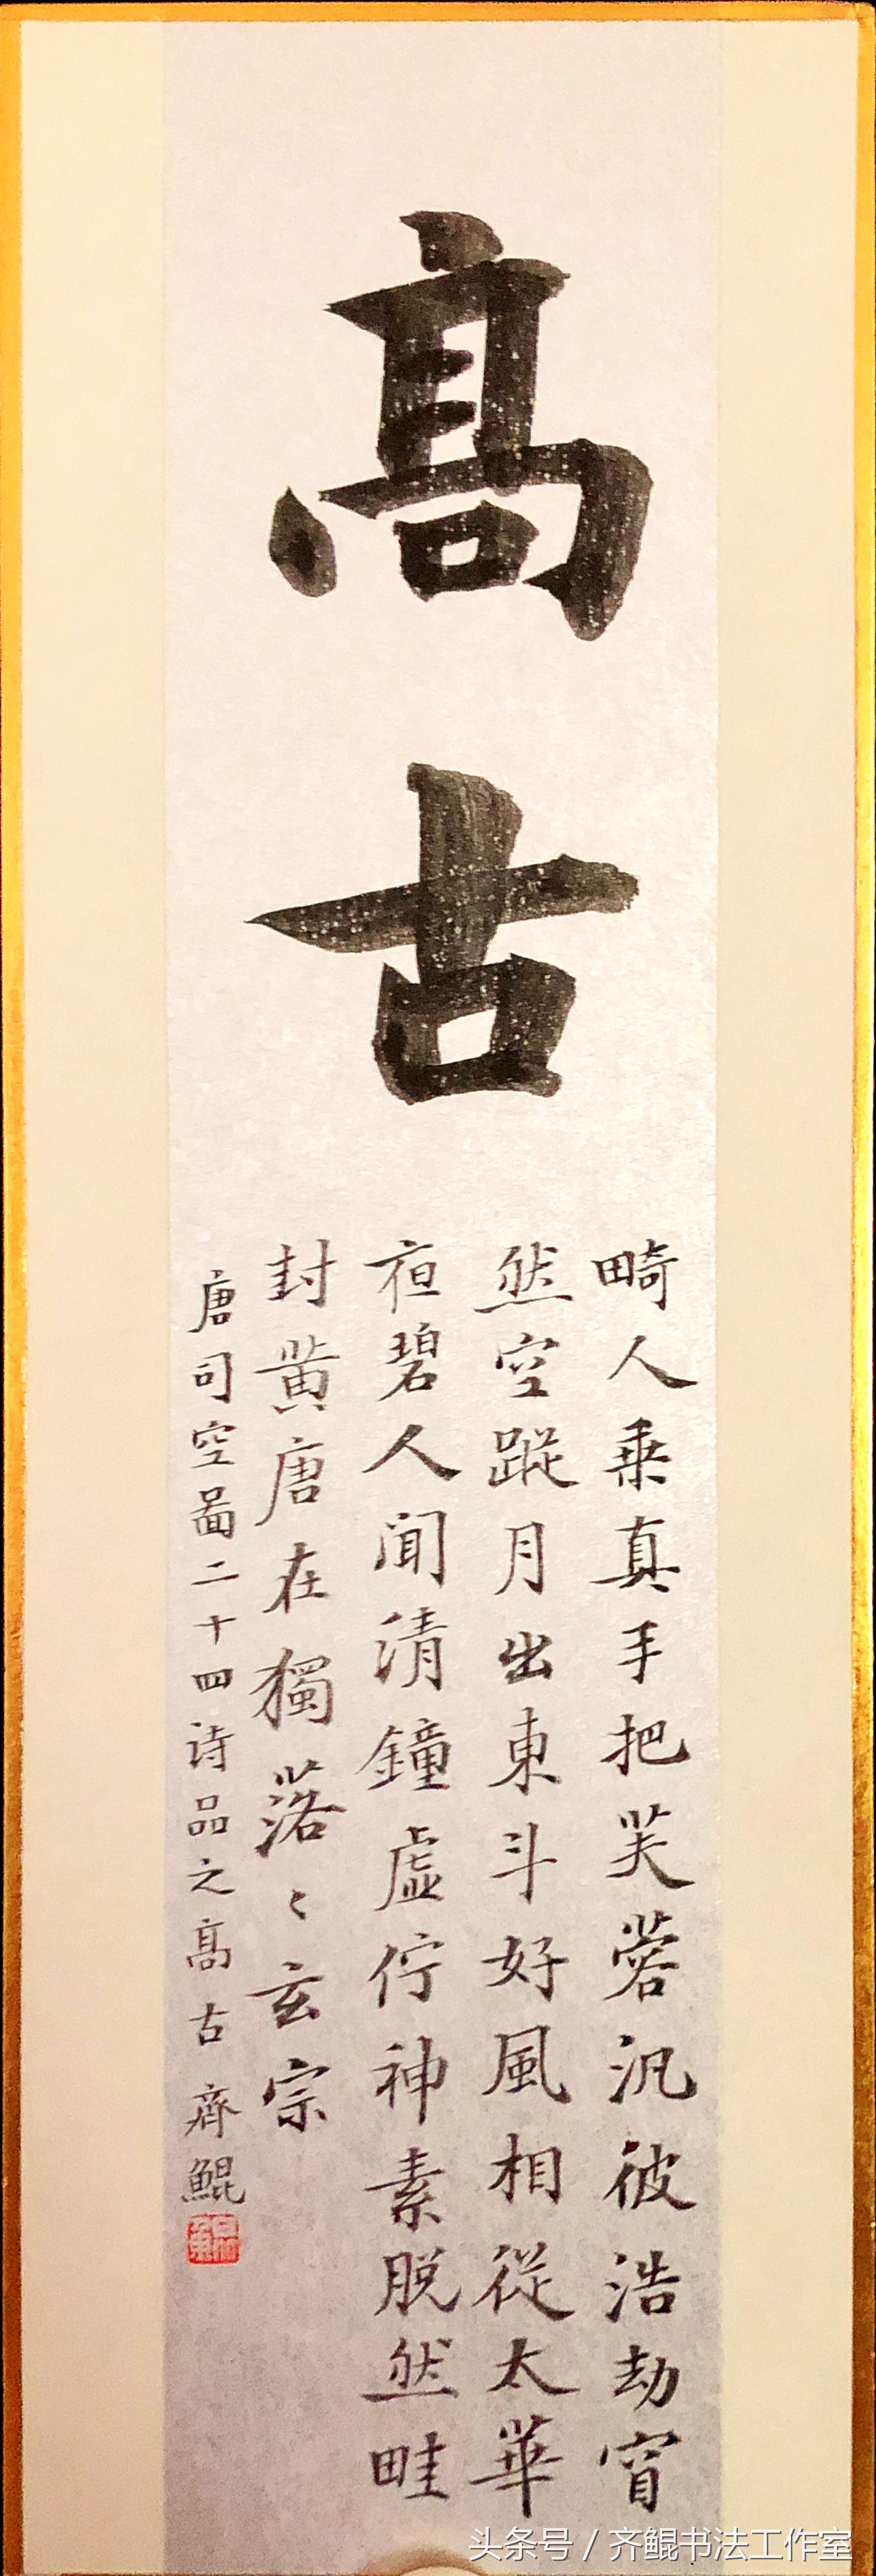 高古
畸人乗真手把芙蓉汎彼浩劫窅
然空蹤月出東斗好風相從太華
夜碧人聞清鐘虛佇神素脫然畦
封黃唐在獨落〻玄宗
唐司空圖二十四诗品之高古 齊鯤
头条号 / 齐鲲书法工作室